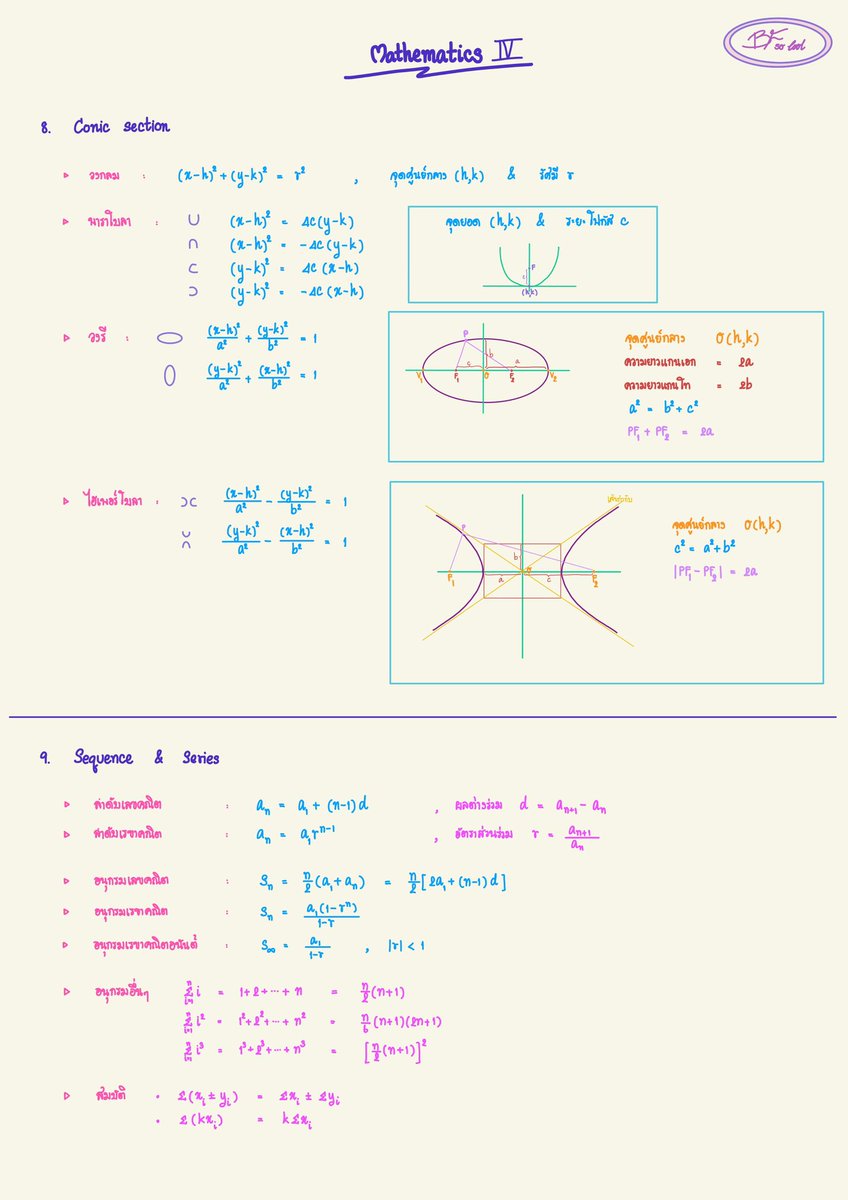 Mathematics IV
8. Conic section
▷ วงกลม : (x-h)² + (y-k)² = r² , จุดศูนย์กลาง (h,k) & รัศมี r
▷ พาราโบลา : ∪ (x-h)² = 4c(y-k)
∩ (x-h)² = -4c(y-k)
⊂ (y-k)² = 4c(x-h)
⊃ (y-k)² = -4c(x-h)
จุดยอด (h,k) & ระยะโฟกัส c
F
c
(h,k)
▷ วงรี : (x-h)²/a² + (y-k)²/b² = 1
(y-k)²/a² + (x-h)²/b² = 1
P
b
c a
V₁ F₁ O F₂ V₂
จุดศูนย์กลาง O(h,k)
ความยาวแกนเอก = 2a
ความยาวแกนโท = 2b
a² = b² + c²
PF₁ + PF₂ = 2a
▷ ไฮเพอร์โบลา : ⊃⊂ (x-h)²/a² - (y-k)²/b² = 1
(y-k)²/a² - (x-h)²/b² = 1
เส้นกำกับ
P
b
O
F₁ a c F₂
จุดศูนย์กลาง O(h,k)
c² = a² + b²
|PF₁ - PF₂| = 2a
9. Sequence & Series
▷ ลำดับเลขคณิต : aₙ = a₁ + (n-1)d , ผลต่างร่วม d = aₙ₊₁ - aₙ
▷ ลำดับเรขาคณิต : aₙ = a₁rⁿ⁻¹ , อัตราส่วนร่วม r = aₙ₊₁/aₙ
▷ อนุกรมเลขคณิต : Sₙ = n/2(a₁+aₙ) = n/2[2a₁+(n-1)d]
▷ อนุกรมเรขาคณิต : Sₙ = a₁(1-rⁿ)/1-r
▷ อนุกรมเรขาคณิตอนันต์ : S∞ = a₁/1-r , |r| < 1
▷ อนุกรมอื่นๆ ⁿΣᵢ₌₁ i = 1+2+⋯+n = n/2(n+1)
ⁿΣᵢ₌₁ i² = 1²+2²+⋯+n² = n/6(n+1)(2n+1)
ⁿΣᵢ₌₁ i³ = 1³+2³+⋯+n³ = [n/2(n+1)]²
▷ สมบัติ • Σ(xᵢ ± yᵢ) = Σxᵢ ± Σyᵢ
• Σ(kxᵢ) = kΣxᵢ